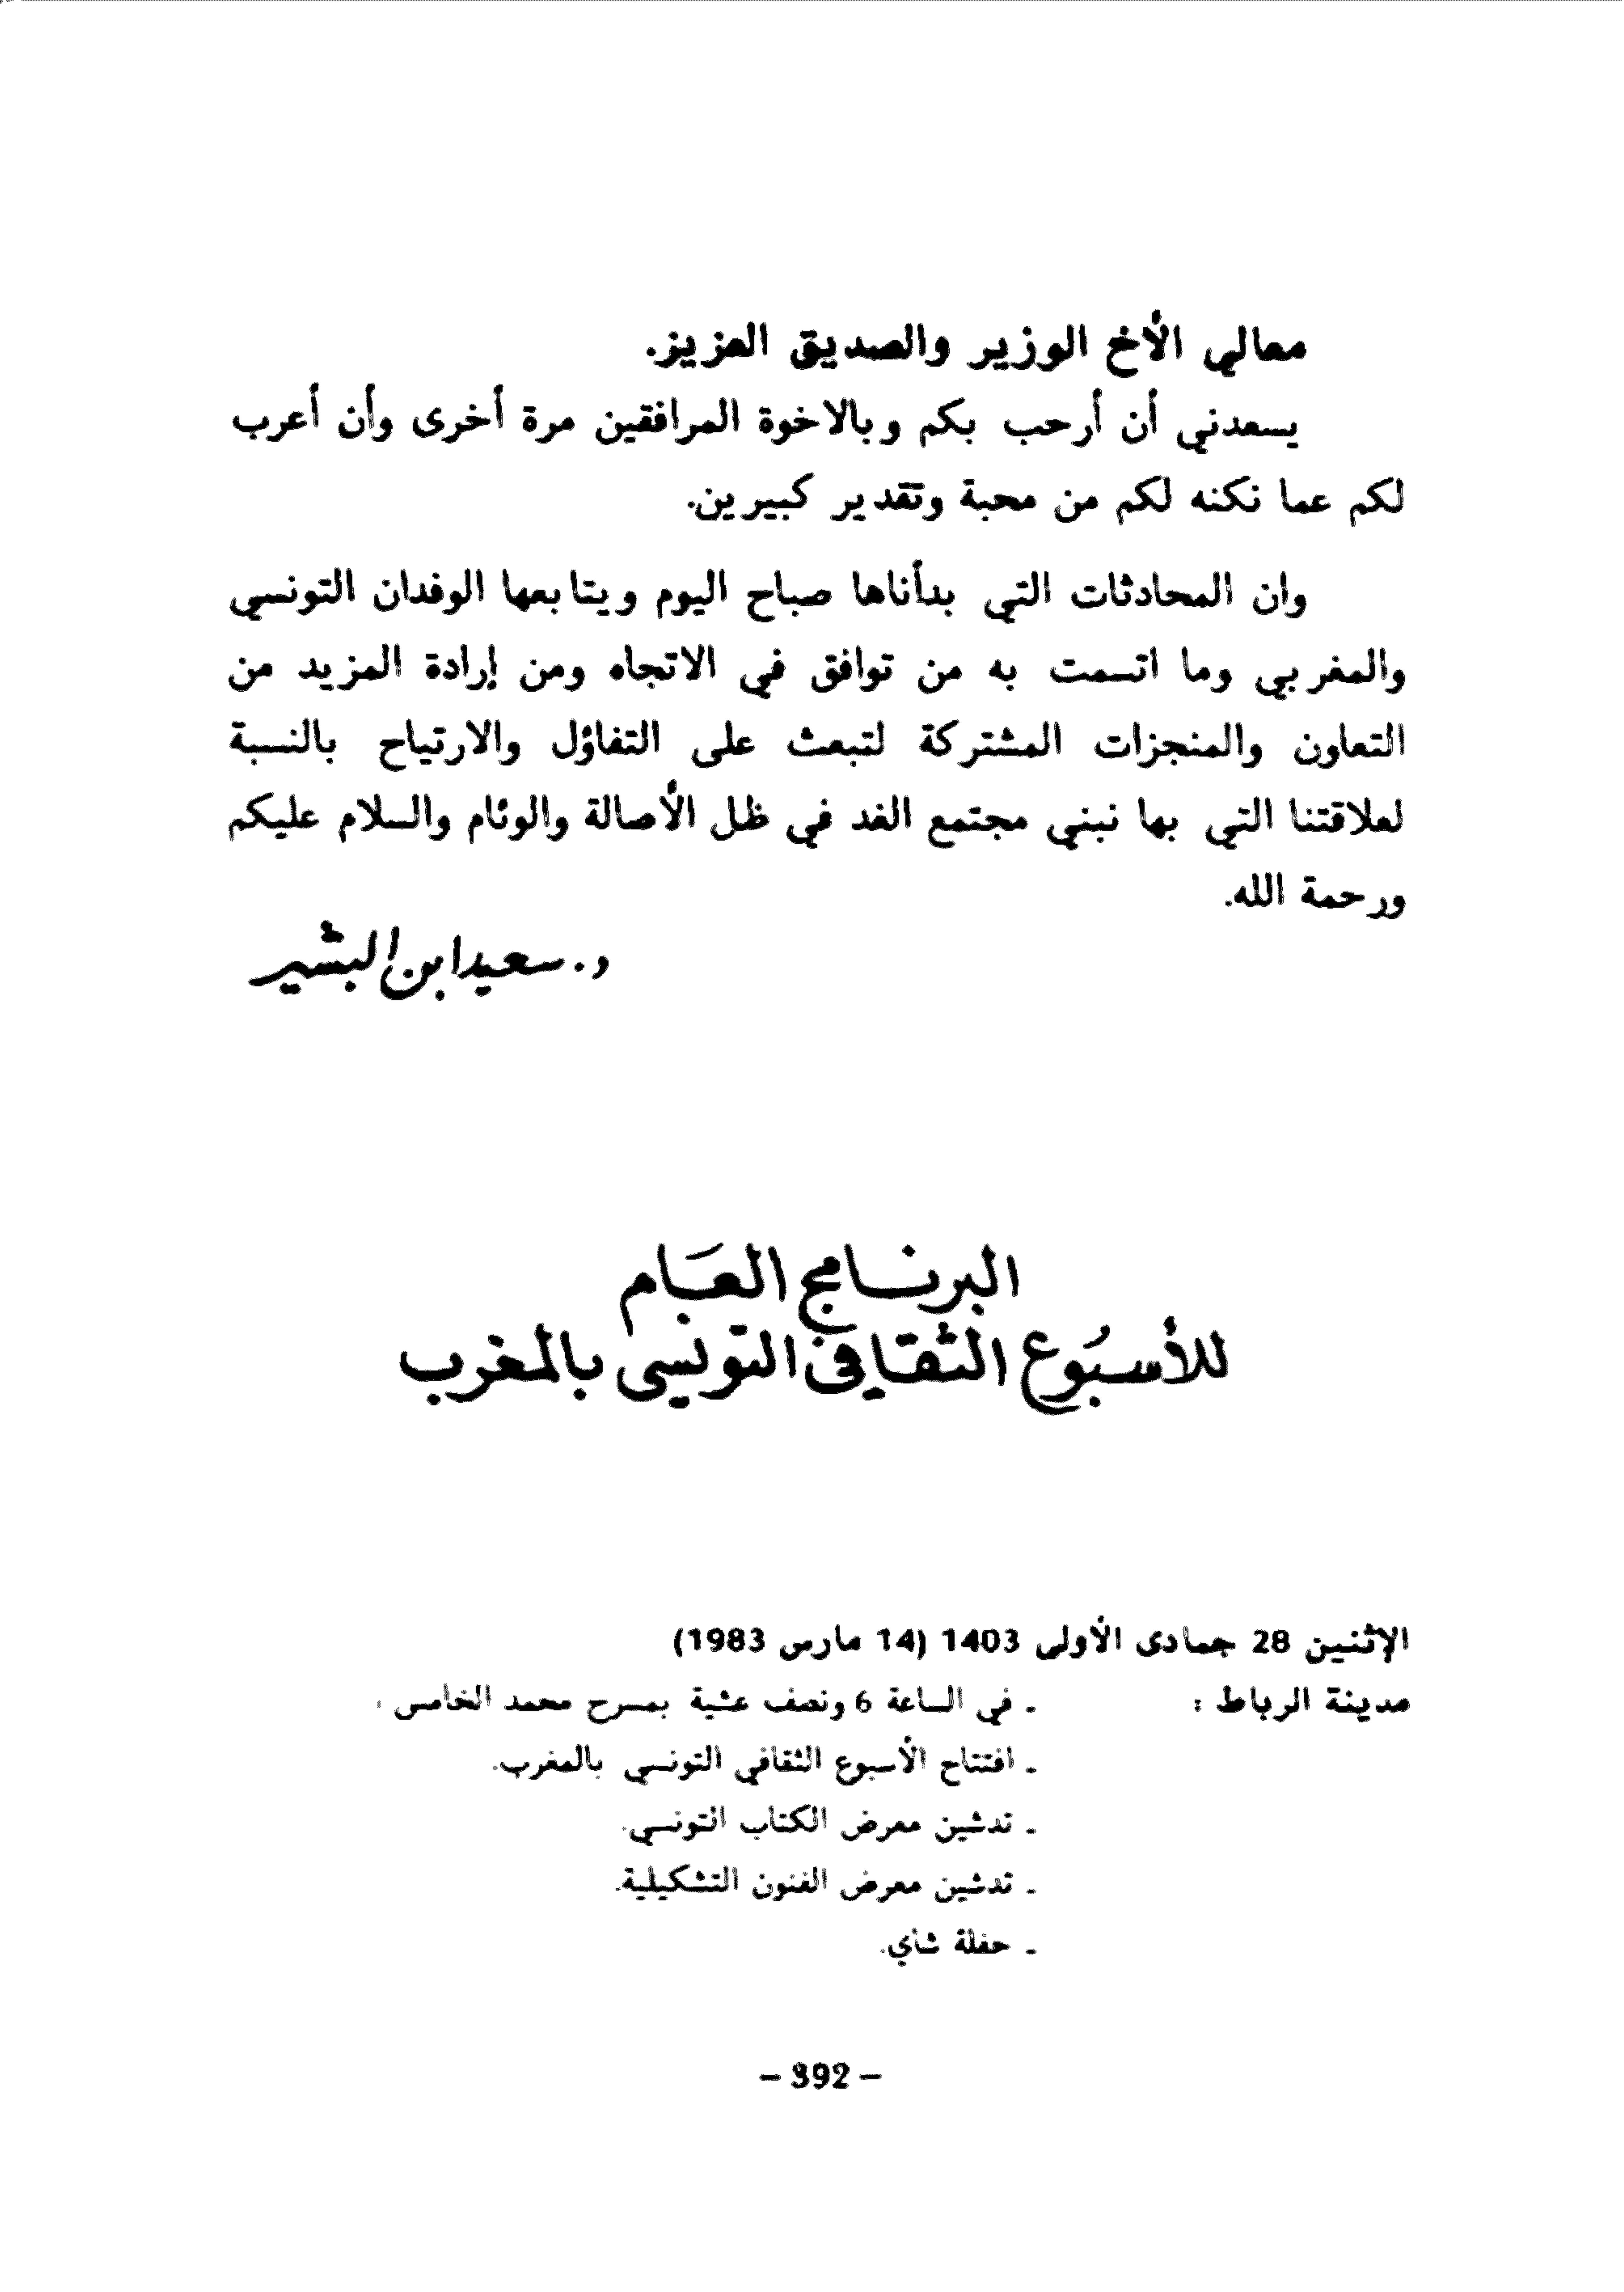 معالي الأخ الوزير والصديق العزيز.
يسعدني أن أرحب بكم وبالاخوة المرافقين مرة أخرى وأن أعرب
لكم عما نكنه لكم من محبة وتقدير كبيرين.
وان المحادثات التي بدأناها صباح اليوم ويتابعها الوفدان التونسي
والمغربي وما اتسمت به من توافق في الاتجاه ومن إرادة المزيد من
التعاون والمنجزات المشتركة لتبعث على التفاؤل والارتياح بالنسبة
لعلاقتنا التي بها نبني مجتمع الغد في ظل الأصالة والوئام والسلام عليكم
ورحمة الله.
د. سعيد ابن البشير
البرنامج العام
للأسبوع الثقافي التونسي بالمغرب
الإثنين 28 جمادى الأولى 1403 (14 مارس 1983)
مدينة الرباط : ـ في الساعة 6 ونصف عشية بمسرح محمد الخامس :
ـ افتتاح الأسبوع الثقافي التونسي بالمغرب.
ـ تدشين معرض الكتاب التونسي.
ـ تدشين معرض الفنون التشكيلية.
ـ حفلة شاي.
– 392 –